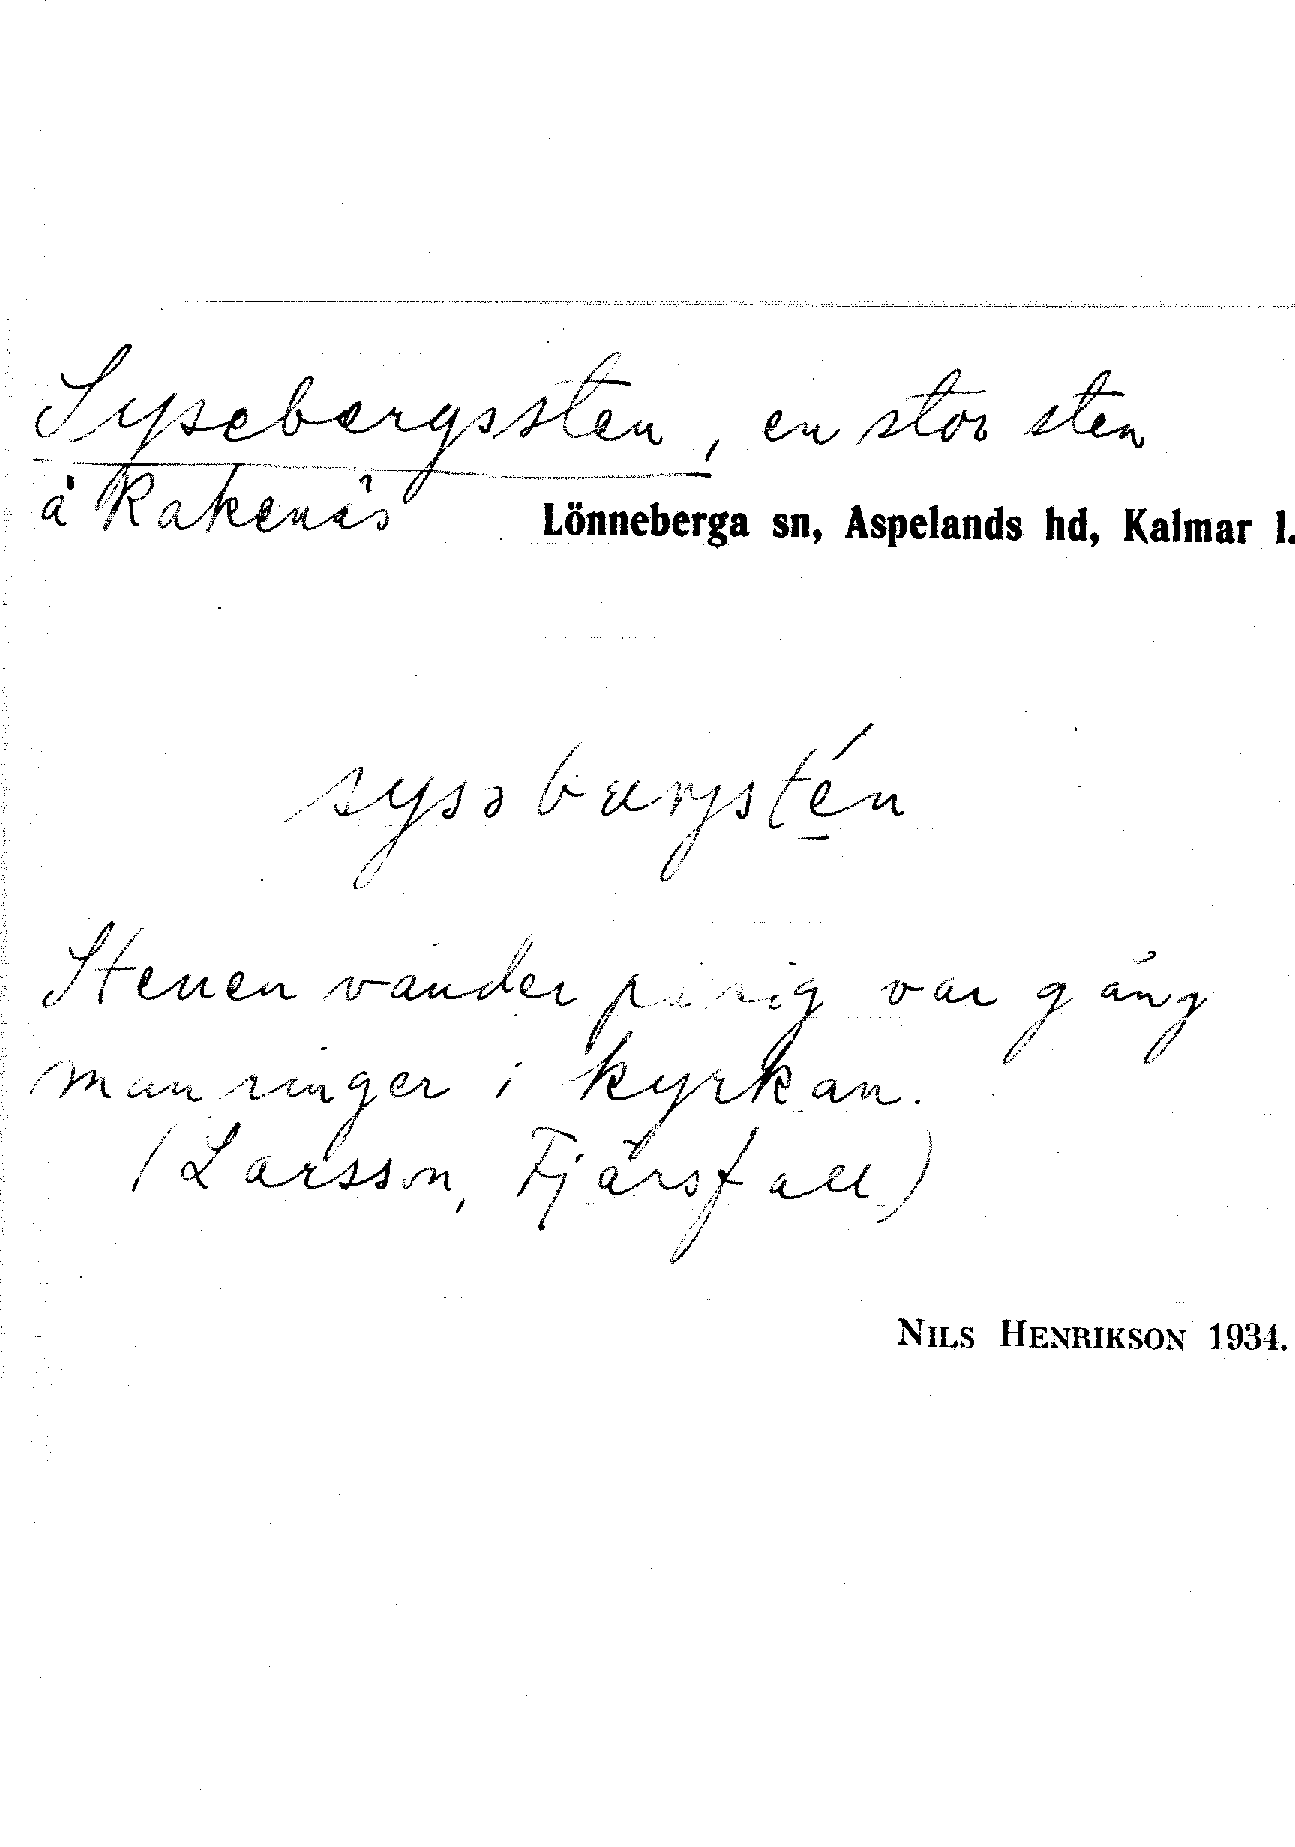 Sysebergssten, en stor sten
å Rakenäs Lönneberga sn, Aspelands hd, Kalmar l.
sysəbærjstén
Stenen vänder på sig var gång
man ringer i kyrkan.
(Larsson, Fjärsfall)
NILS HENRIKSON 1934.